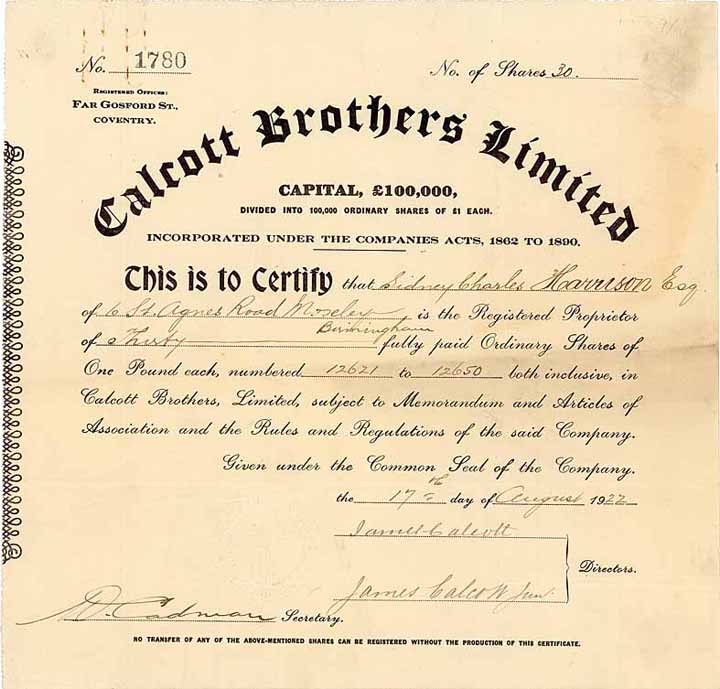 No. 1780
No. of Shares 30.
Registered Offices:
Far Gosford St.,
Coventry.
Calcott Brothers Limited
CAPITAL, £100,000,
DIVIDED INTO 100,000 ORDINARY SHARES OF £1 EACH.
INCORPORATED UNDER THE COMPANIES ACTS, 1862 TO 1890.
This is to Certify that Sidney Charles Harrison Esq
of 6 St. Agnes Road Moseley Birmingham, is the Registered Proprietor
of Thirty fully paid Ordinary Shares of
One Pound each, numbered 12621 to 12650 both inclusive, in
Calcott Brothers, Limited, subject to Memorandum and Articles of
Association and the Rules and Regulations of the said Company.
Given under the Common Seal of the Company.
the 17th day of August 1922
James Calcott
Directors.
James Calcott Jun.
Cadman Secretary.
NO TRANSFER OF ANY OF THE ABOVE-MENTIONED SHARES CAN BE REGISTERED WITHOUT THE PRODUCTION OF THIS CERTIFICATE.